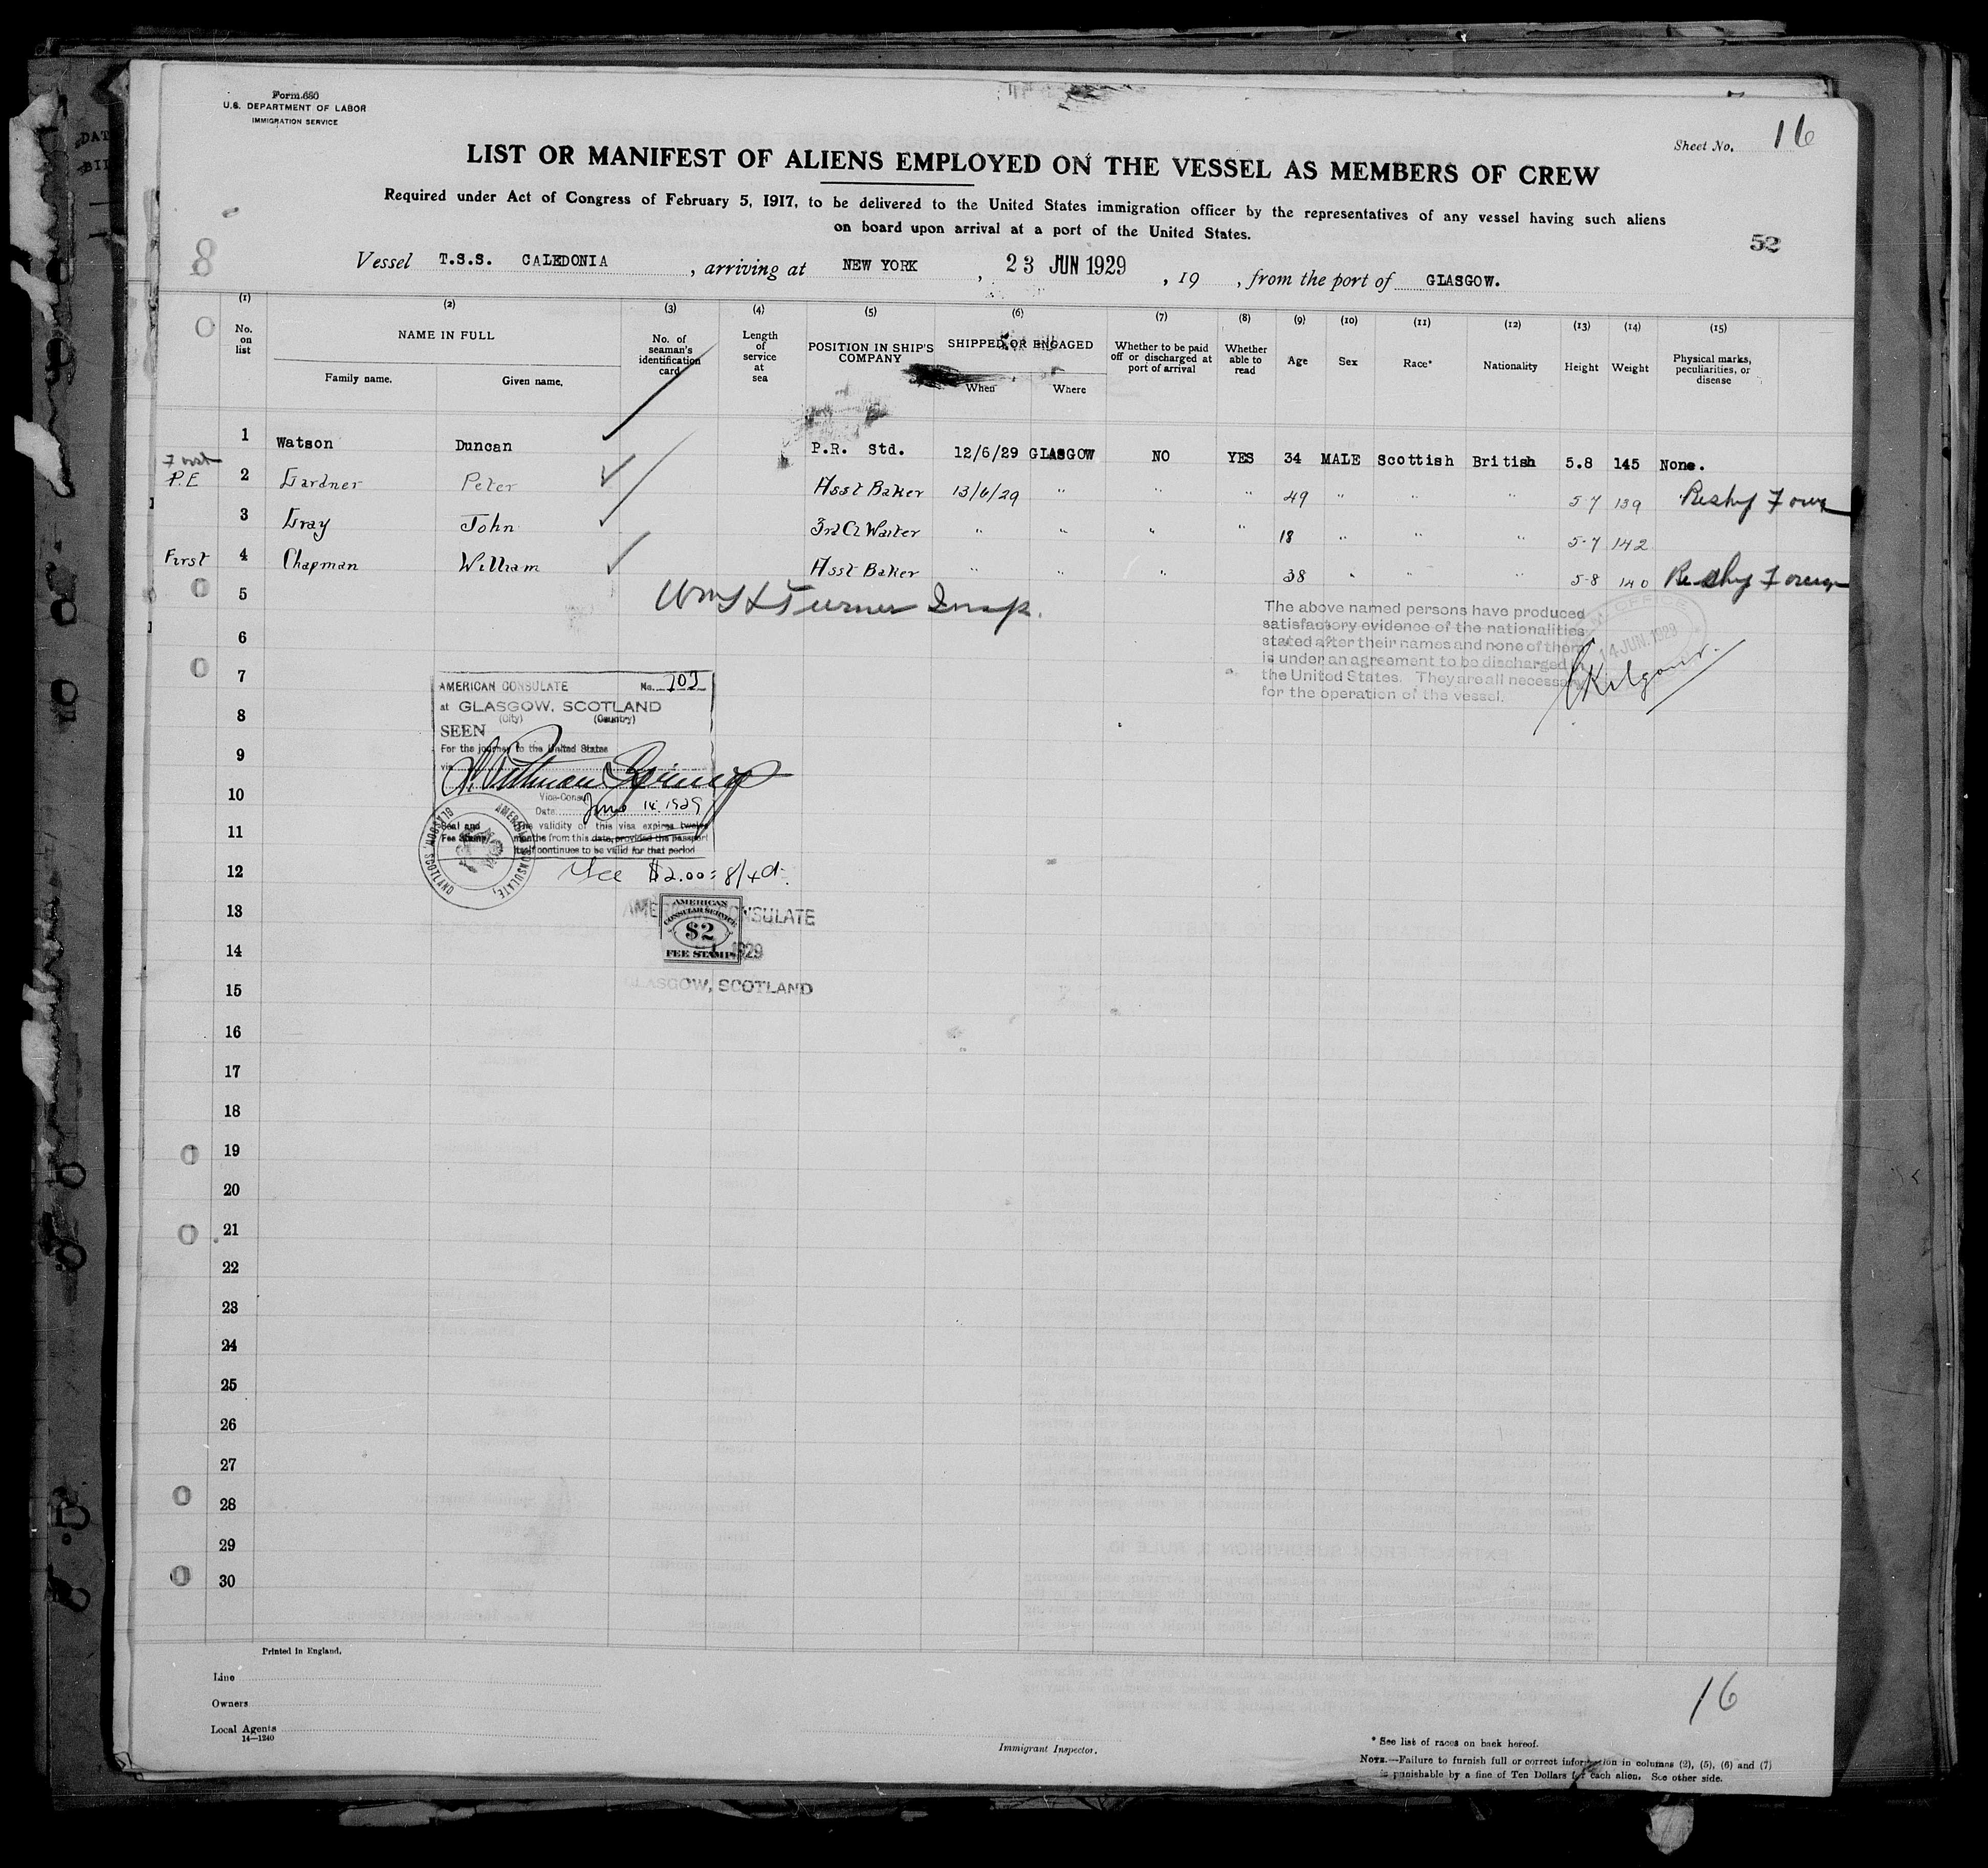 Form 680
U.S. DEPARTMENT OF LABOR
IMMIGRATION SERVICE
Sheet No. 16
LIST OR MANIFEST OF ALIENS EMPLOYED ON THE VESSEL AS MEMBERS OF CREW
Required under Act of Congress of February 5, 1917, to be delivered to the United States immigration officer by the representatives of any vessel having such aliens
on board upon arrival at a port of the United States.
52
8
Vessel T.S.S. CALEDONIA, arriving at NEW YORK, 23 JUN 1929, 19 , from the port of GLASGOW.
(1) (2) (3) (4) (5) (6) (7) (8) (9) (10) (11) (12) (13) (14) (15)
No. on list
NAME IN FULL
Family name. Given name.
No. of seaman's identification card
Length of service at sea
POSITION IN SHIP'S COMPANY
SHIPPED OR ENGAGED
When Where
Whether to be paid off or discharged at port of arrival
Whether able to read
Age Sex Race* Nationality Height Weight
Physical marks, peculiarities, or disease
1 Watson Duncan P.R. Std. 12/6/29 GLASGOW NO YES 34 MALE Scottish British 5.8 145 None.
First
P.E 2 Gardner Peter Asst Baker 13/6/29 " " " 49 " " " 5-7 139
3 Gray John 3rd Cl Waiter " " " " 18 " " " 5-7 142
First 4 Chapman William Asst Baker " " " 38 " " " 5-8 140
5
Turner Insp.
6
The above named persons have produced
satisfactory evidence of the nationalities
stated after their names and none of them
is under an agreement to be discharged in
the United States. They are all necessary
for the operation of the vessel.
14 JUN. 1929
Kilgour.
7
AMERICAN CONSULATE No. 703
at GLASGOW, SCOTLAND
(City) (Country)
8
SEEN
For the journey to the United States
via
9
10
Vice-Consul
Date: June 14, 1929
11
Seal and
Fee Stamp
The validity of this visa expires twelve
months from this date, provided the passport
itself continues to be valid for that period
AMERICAN CONSULATE,
GLASGOW, SCOTLAND
12
Fee $2.00 = 8/4d.
13
AMERICAN CONSULATE
AMERICAN
CONSULAR SERVICE
$2
FEE STAMP
1929
14
GLASGOW, SCOTLAND
15
16
17
18
19
20
21
22
23
24
25
26
27
28
29
30
Printed in England.
Line
Owners
Local Agents
14—1240
Immigrant Inspector.
16
* See list of races on back hereof.
NOTE.—Failure to furnish full or correct information in columns (2), (5), (6) and (7)
is punishable by a fine of Ten Dollars for each alien. See other side.